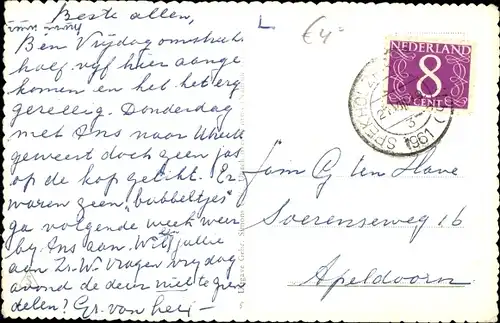 Beste allen,
Ben Vrijdag omstreeks
half vijf hier aange
komen en het het erg
gezellig. Donderdag
met Ins naar
geweest doch geen jas
op de kop getikt. Er
waren geen "bubbeltjes"
ga volgende week weer
bij Ins aan. Wil jullie
aan Zr. W. vragen vrijdag
avond de deur niet te gren
delen? Gr. van
€4-
NEDERLAND
8
CENT
3
1961
Fam G ten Have
Soerenseweg 16
Apeldoorn